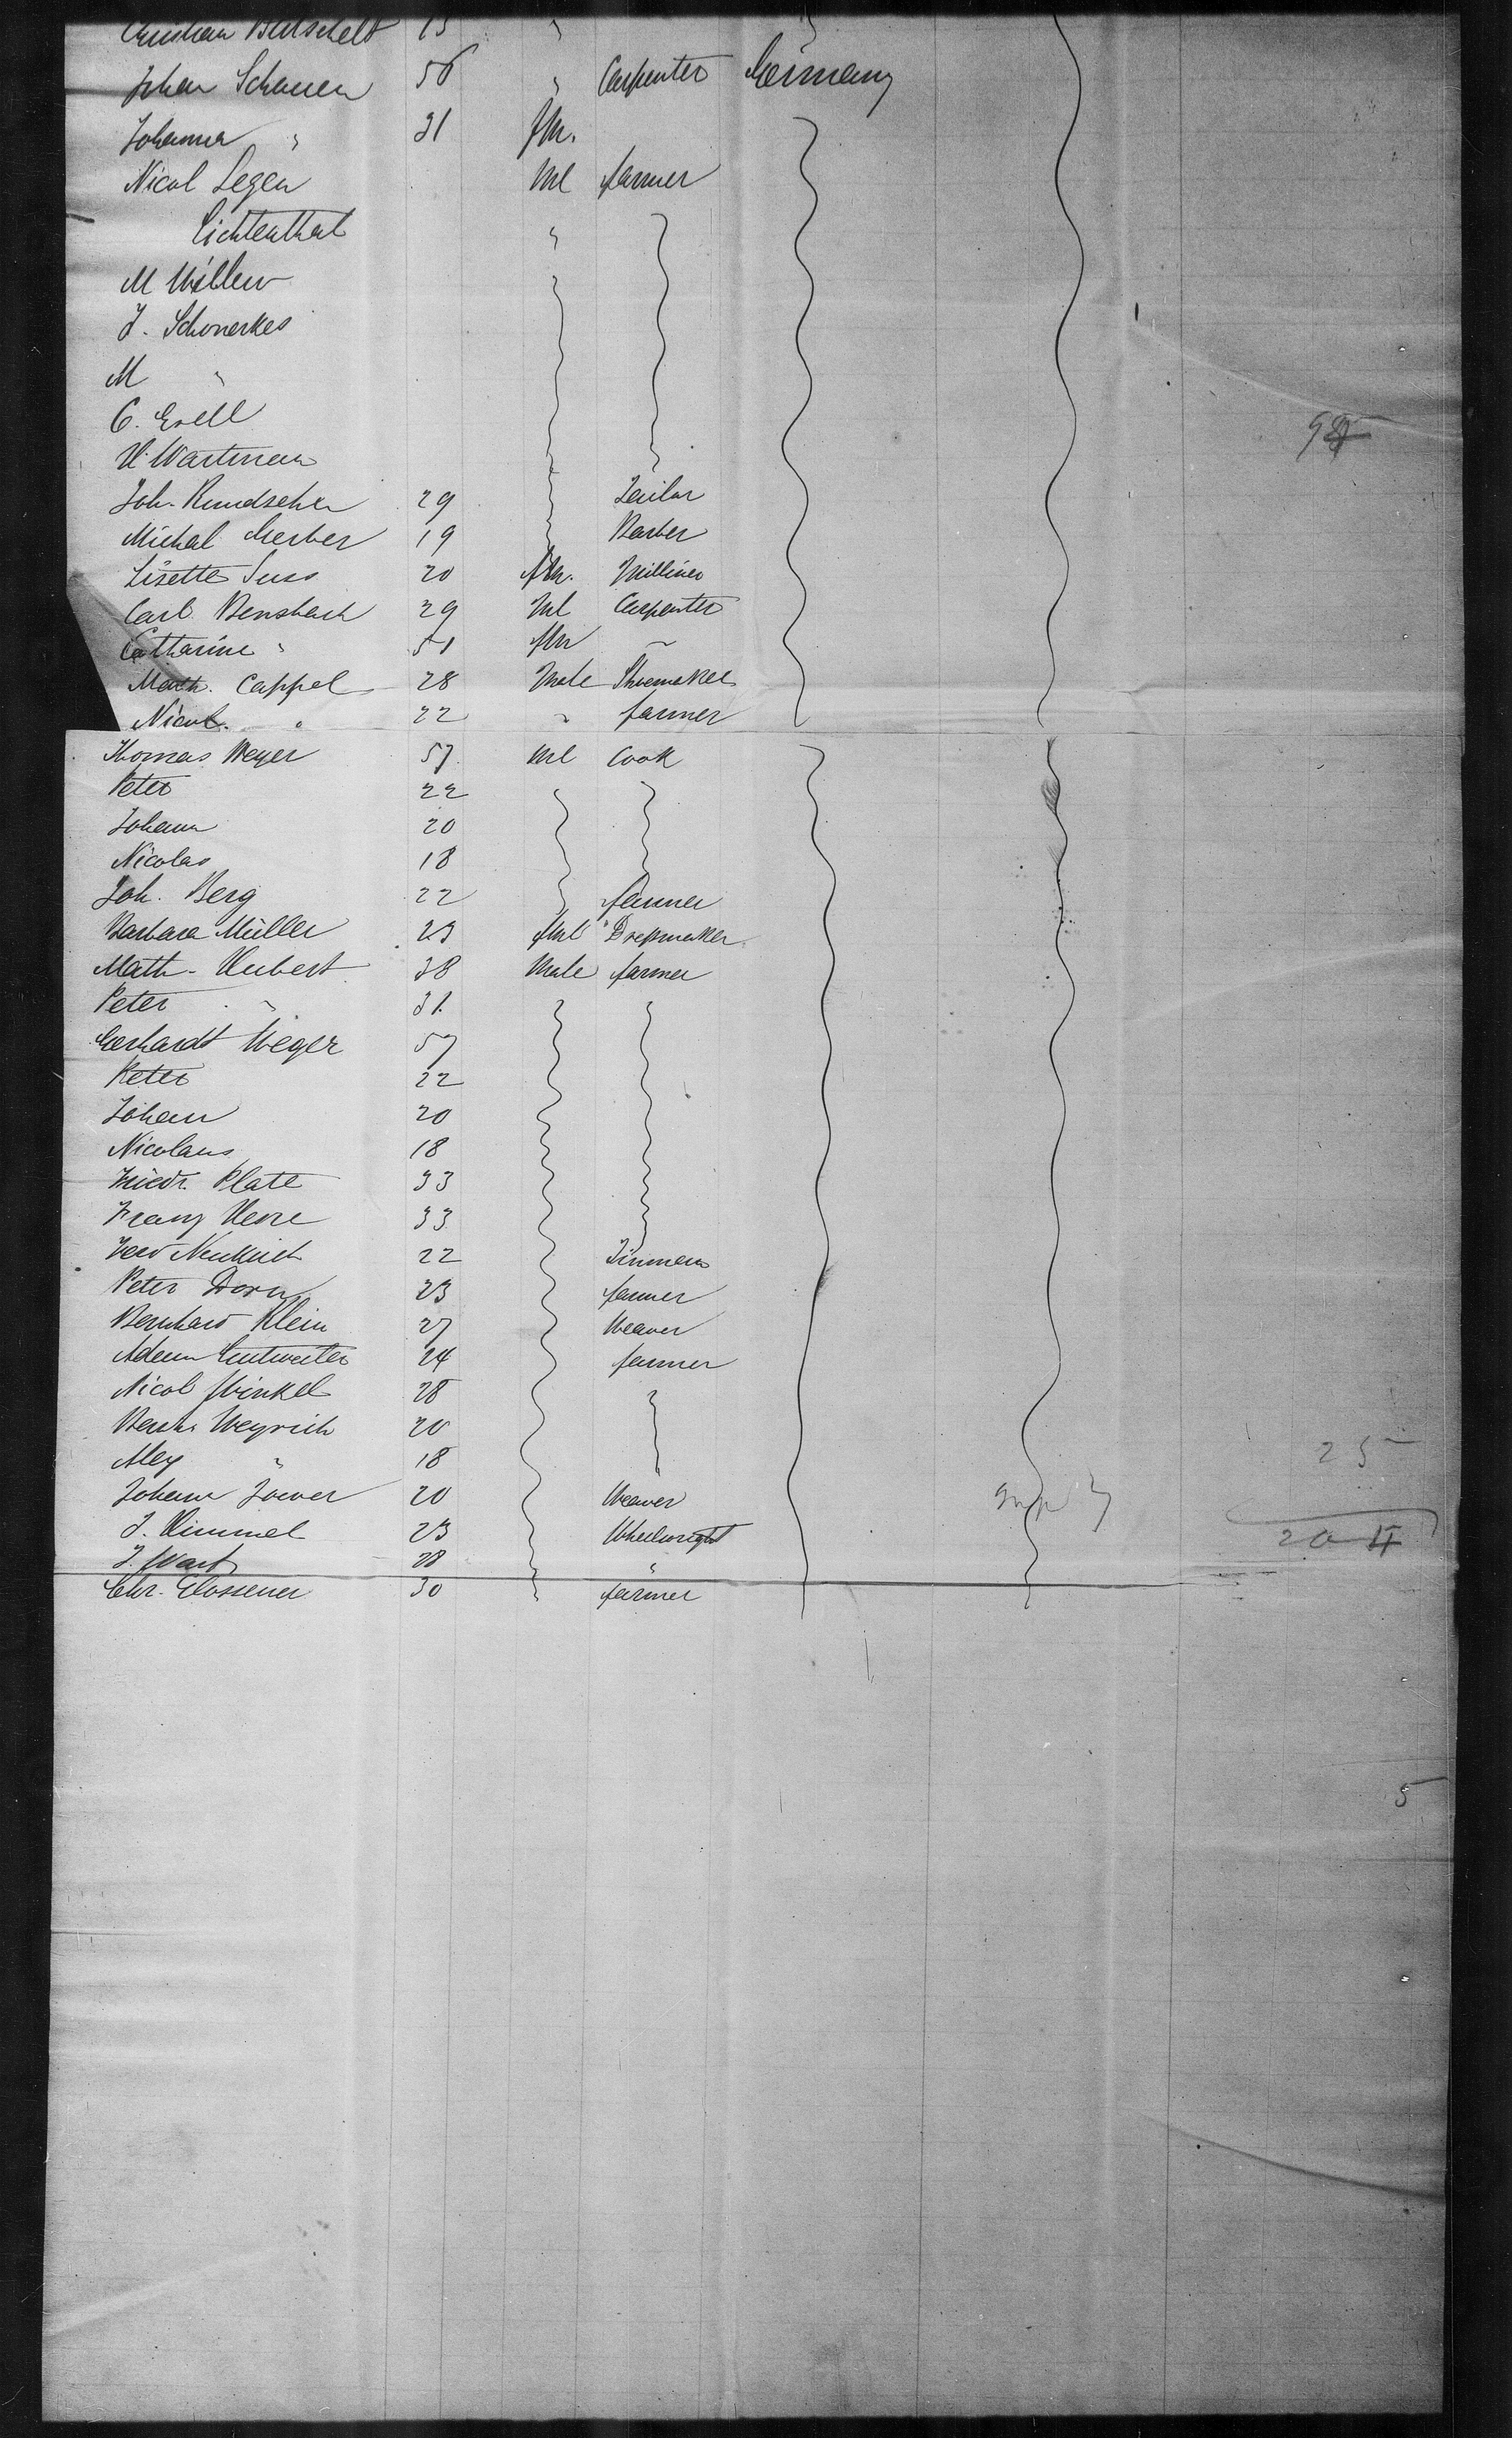 Christian Butscheldt 15 "
Johan Schauen 56 " Carpenter Germany
Johanna " 31 fm.
Nicol Legen ml farmer
Lichtenthal "
M Müller
J. Schonerkes
M "
C. Grell
H. Wartman 98
Joh. Rundscher 29 Tailor
Michal Gerber 19 Barber
Lisette Suss 20 fm. Milliner
Carl Bensbach 29 Ml Carpenter
Catharine " 51 fm —
Math. Cappel 28 Male Shoemaker
Nicol. " 22 " farmer
Thomas Weyer 57 Ml Cook
Peter 22
Johann 20
Nicolas 18
Joh. Berg 22 farmer
Barbara Müller 23 fml Dressmaker
Math. Hubert 38 Male farmer
Peter " 31
Gerhardt Weyer 57
Peter 22
Johan 20
Nicolaus 18
Friedr. Plate 33
Franz Hesse 33
Neukirch 22
Peter Dorn 23 farmer
Bernhard Klein 27 Weaver
Adam 24 farmer
Nicol Winkel 28
Weyrich 20
Alex " 18 25
Johann 20 Weaver
J. Himmel 23 Wheelwright 204
J. Wart 28 "
Chr. Glossener 30 farmer
5